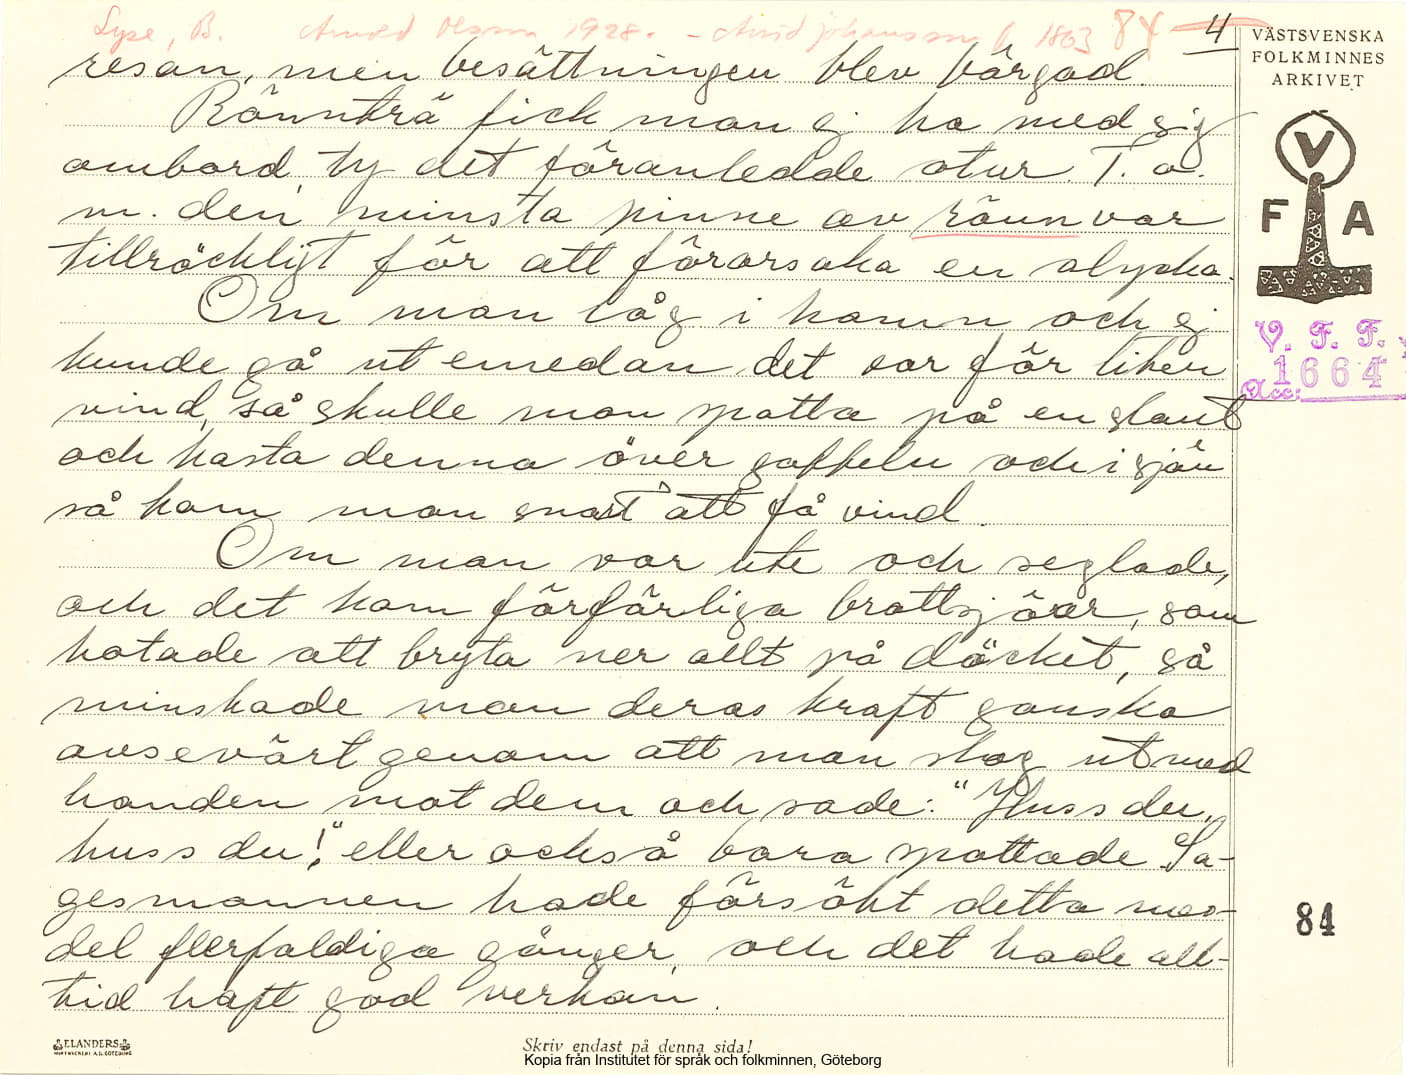 Lyse, B. Arnold Olsson 1928. - Arvid Johansson f. 1863 84 4
VÄSTSVENSKA
FOLKMINNES
ARKIVET
V
F A
V. F. F.
1664
Acc:
resan, men besättningen blev bärgad.
Rönnträ fick man ej ha med sig
ombord, ty det föranledde otur. T. o.
m. den minsta pinne av rönn var
tillräckligt för att förorsaka en olycka.
Om man låg i hamn och ej
kunde gå ut emedan det var för liten
vind, så skulle man spotta på en slant
och kasta denna över gaffeln och i sjön
så kom man snart att få vind.
Om man var ute och seglade,
och det kom förfärliga brottsjöar, som
hotade att bryta ner allt på däcket, så
minskade man deras kraft ganska
avsevärt genom att man slog ut med
handen mot dem och sade: "Huss du,
huss du!" eller också bara spottade. Sa-
gesmannen hade försökt detta me-
del flerfaldiga gånger, och det hade all-
tid haft god verkan.
84
ELANDERS
Skriv endast på denna sida!
Kopia från Institutet för språk och folkminnen, Göteborg